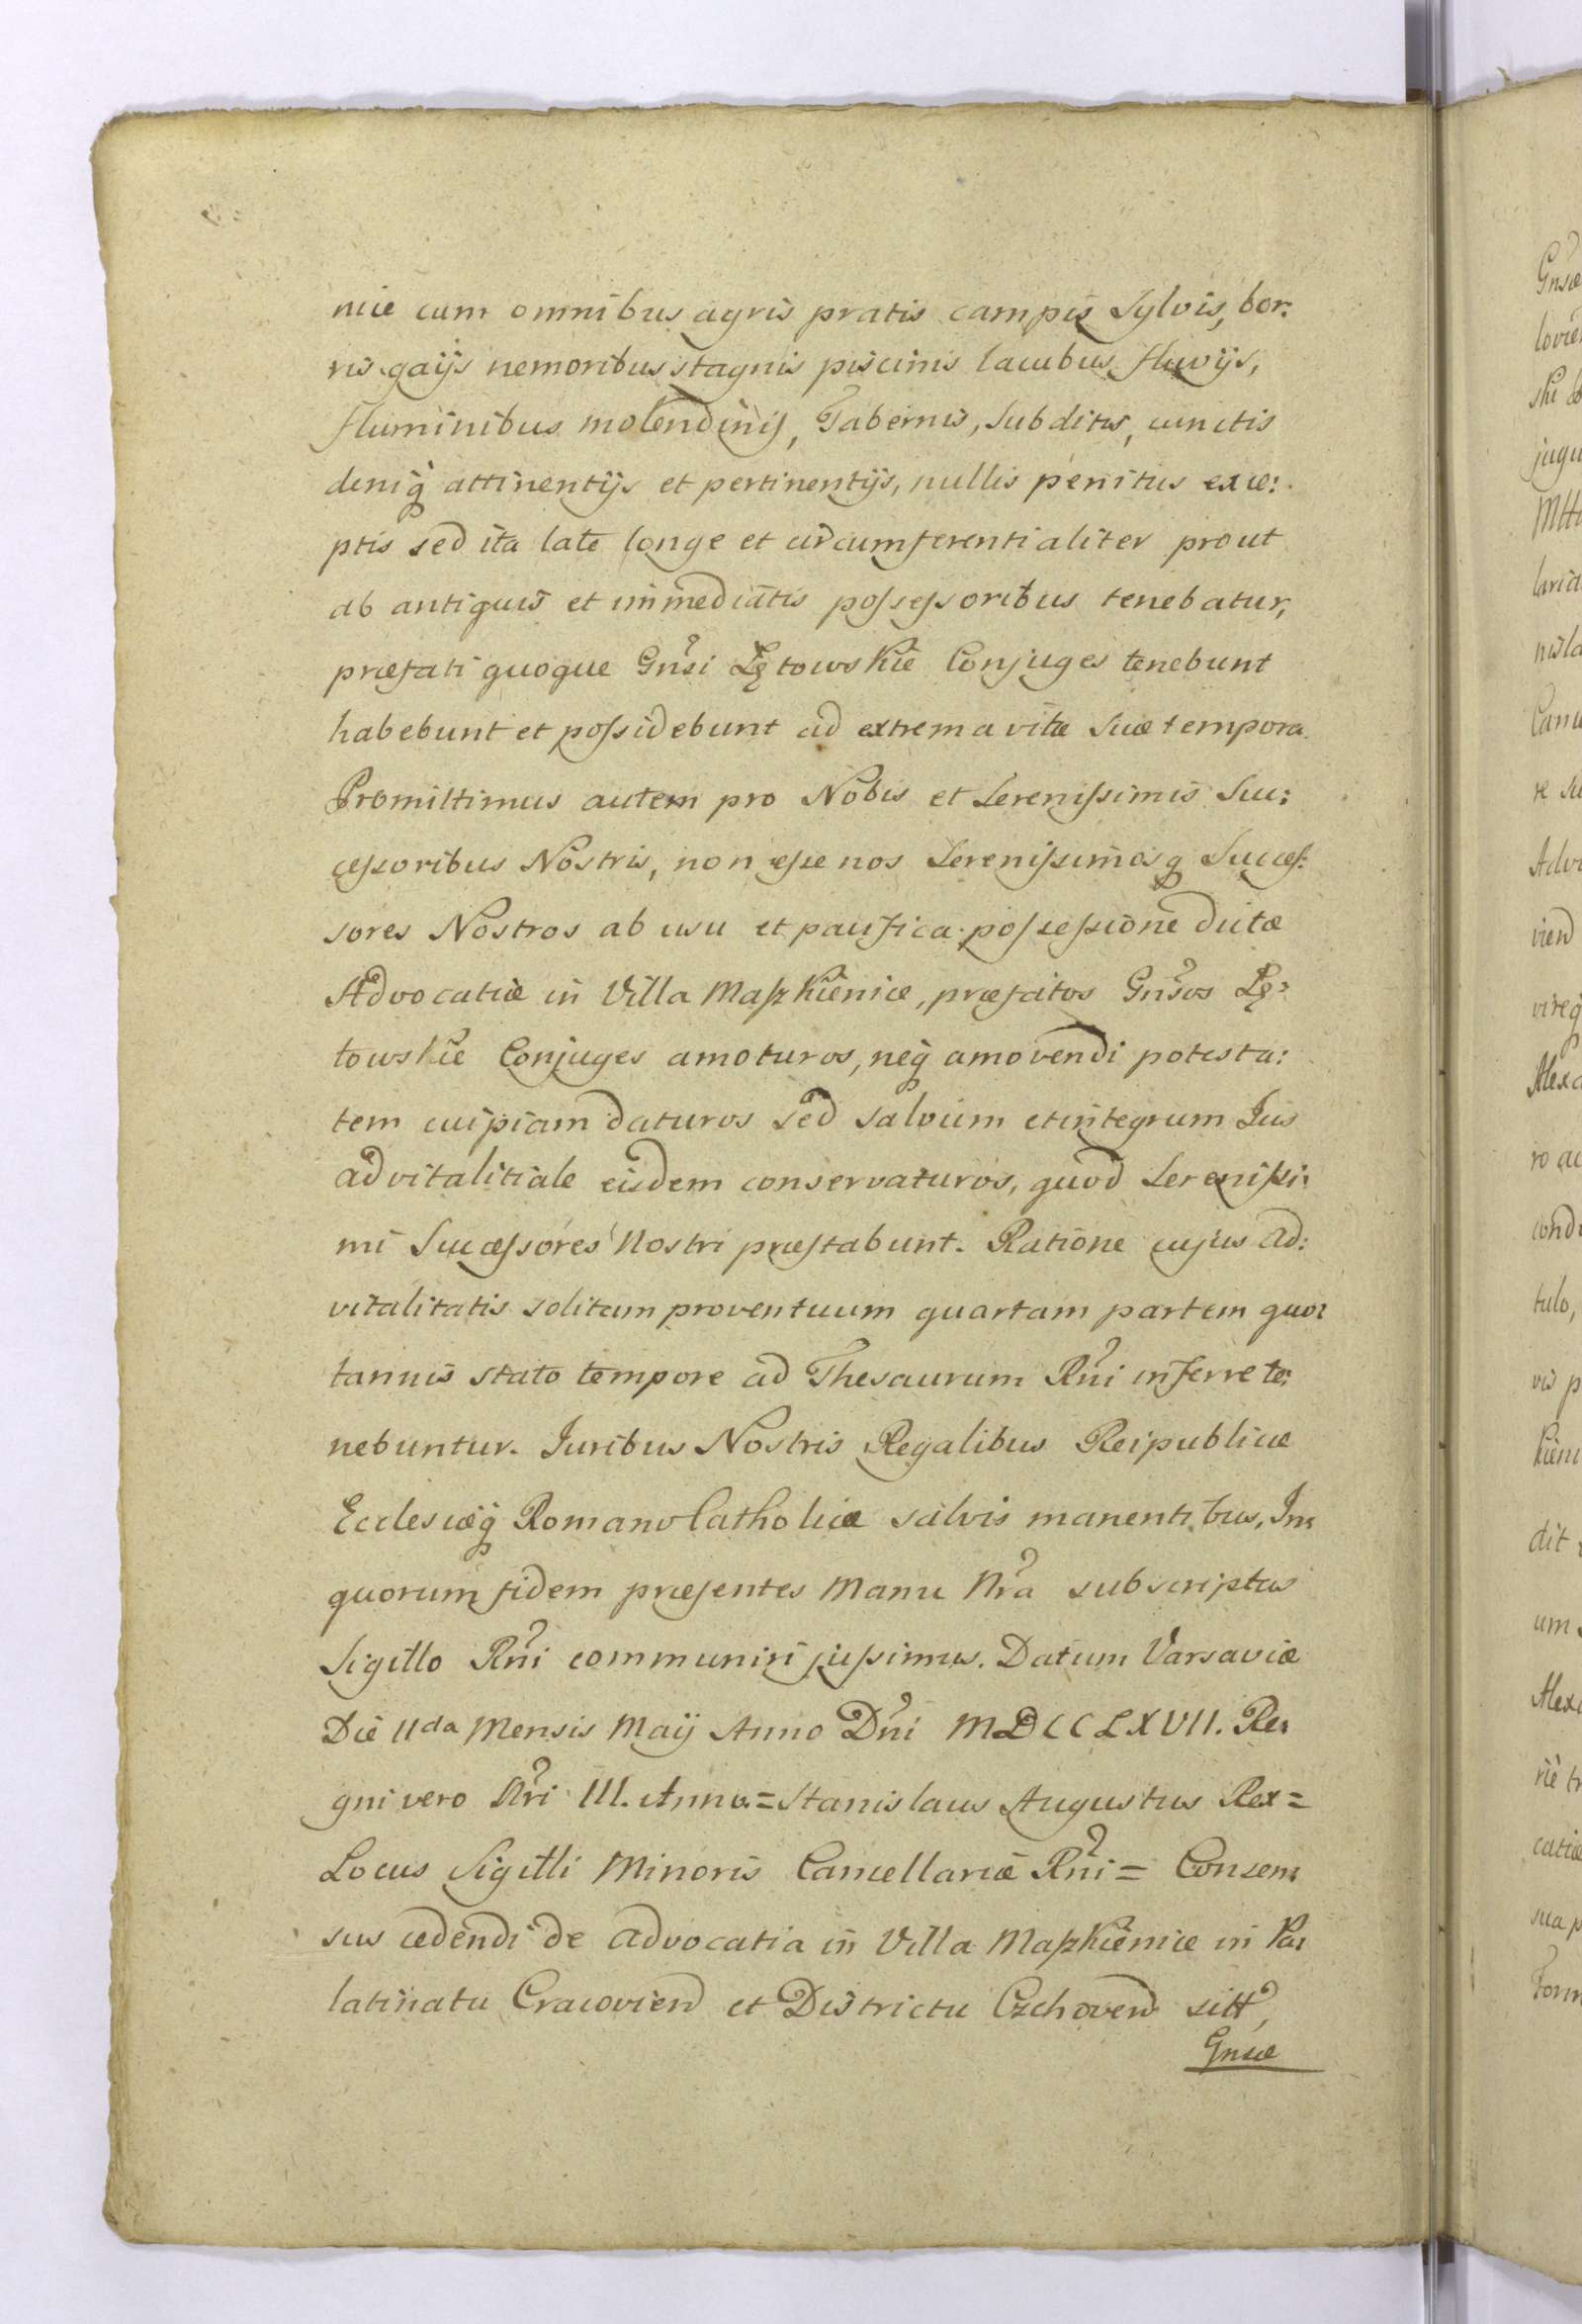 nice cum omnibus agris pratis campis Sylvis, bor:
ris gaijs nemoribus stagnis piscinis lacubus fluvijs,
fluminibus molendinis, Tabernis, Subditis, cunctis
deniq attinentijs et pertinentijs, nullis penitus exce:
ptis sed ita late longe et circumferentialiter prout
ab antiquis et immediatis possessoribus tenebatur,
præfati quoque Gnsi Łętowskie Conjuges tenebunt
habebunt et possidebunt ad extrema vitæ suæ tempora.
Promittimus autem pro Nobis et Serenissimis Suc:
cessoribus Nostris, non esse nos Serenissimosq Succes:
sores Nostros ab usu et pacifica possessione dictæ
Advocatiæ in Villa Maszkienice, præfatos Gnsos Łę:
towskie Conjuges amoturos, neq amovendi potesta:
tem cuipiam daturos sed salvum et integrum Jus
advitalitiale eisdem conservaturos, quod Serenissi:
mi Successores Nostri præstabunt. Ratione cujus ad:
vitalitatis solitam proventuum quartam partem quo:
tannis stato tempore ad Thesaurum Rni inferre te:
nebuntur. Juribus Nostris Regalibus Reipublicæ
Ecclesiæq Romano Catholicæ salvis manentibus, In:
quorum fidem præsentes Manu Nra subscriptas
Sigillo Rni communiri jussimus. Datum Varsaviæ
Die IIda Mensis Maij Anno Dni MDCCLXVII. Re:
gni vero Nri III. Anno = Stanislaus Augustus Rex =
Locus Sigilli Minoris Cancellariæ Rni = Consen:
sus cedendi de advocatia in Villa Maszkienice in Pa:
latinatu Cracovien et Districtu Czchoven sitt,
Gnsæ